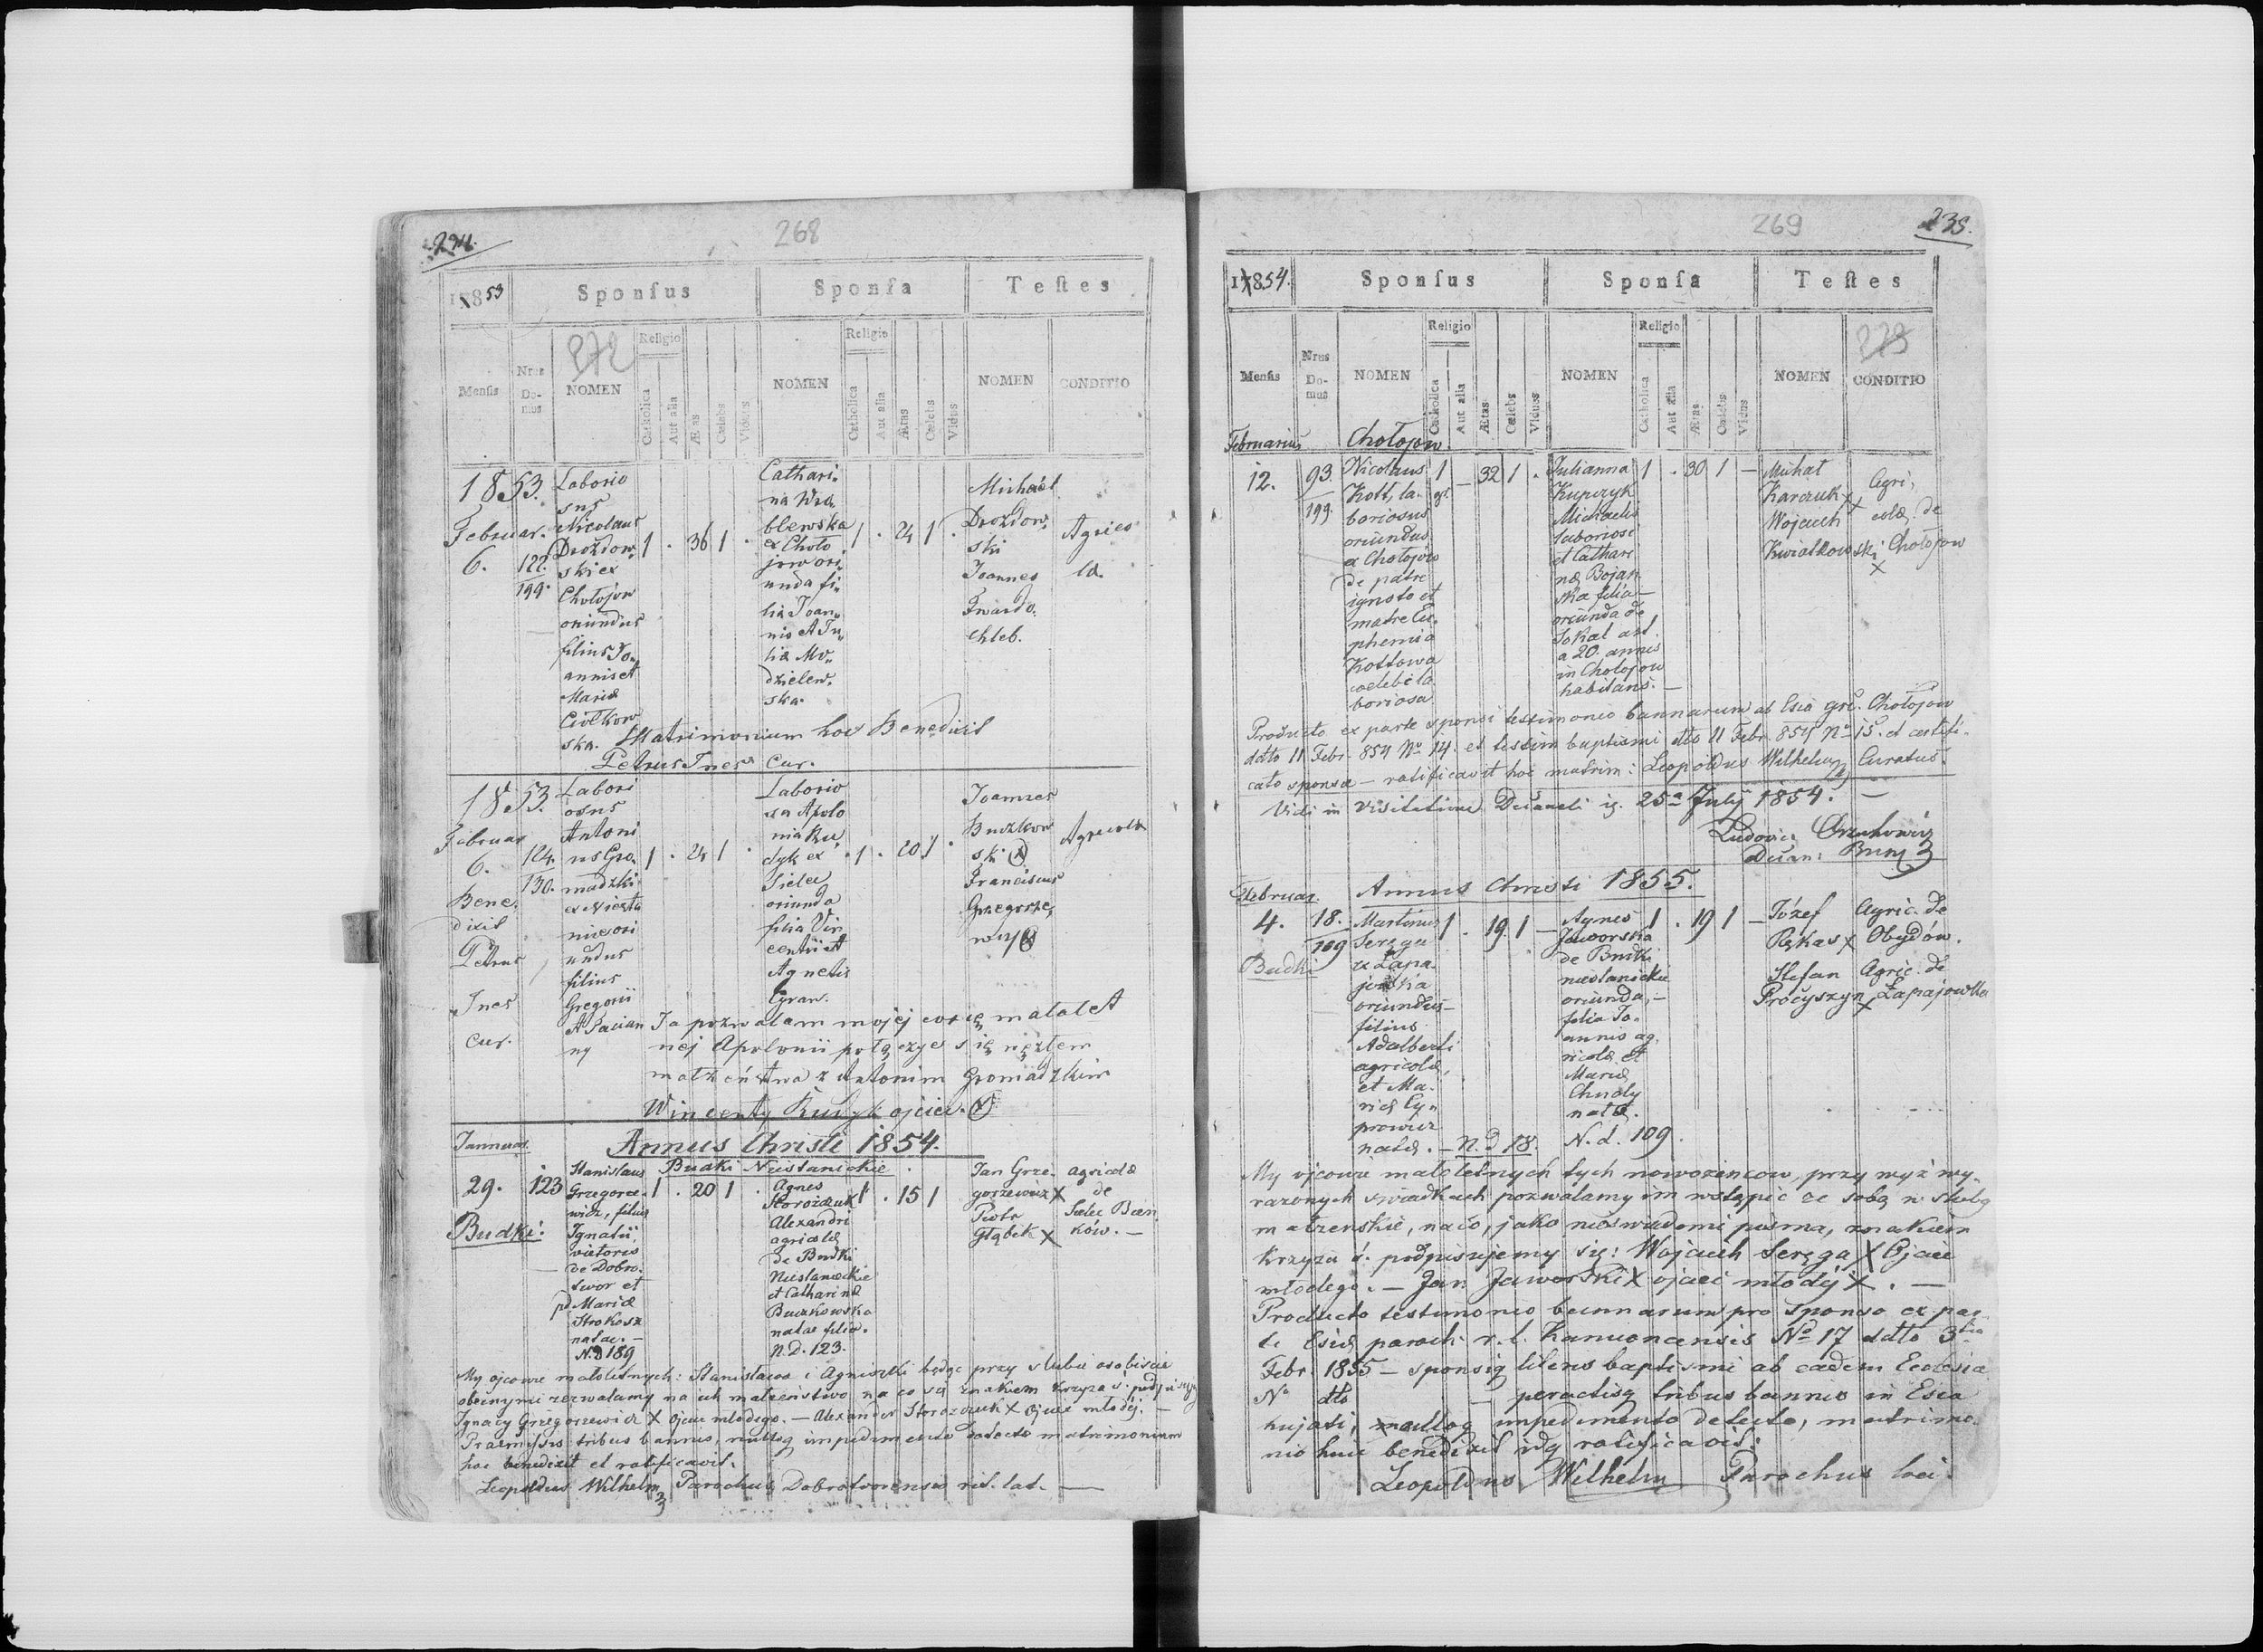 234.
268
1853
Sponsus
Sponsa
Testes
Mensis
Nrus Domus
272
NOMEN
Religio
Catholica
Aut alia
Ætas
Cælebs
Viduus
NOMEN
Religio
Catholica
Aut alia
Ætas
Cælebs
Vidua
NOMEN
CONDITIO
1853.
Februar.
6.
122.
199.
Laborio
sus
Nicolaus
Drozdow
ski ex
Chołojow
oriundus
filius Jo„
annis et
Mariæ
Ciołkow
ska.
1 . 36 1 .
Cathari„
na Wró„
blewska
ex Choło
jow ori„
unda fi„
lia Joan„
nis et Ju„
liæ Mo„
dzelew„
ska.
1 . 24 1 .
Michael
Drozdow„
ski
Joannes
Twardo„
chleb.
Agrico
læ.
Matrimonium hoc Benedixit
Petrus Ines Cur.
1853.
Februar
6.
124.
130.
Bene„
dixit
Petrus
Ines
Cur.
Labori
osus
Antoni
us Gro„
madzki
ex
nie ori
undus
filius
Gregorii
et
ny
1 . 24 1 .
Laborio
sa Apolo
nia Ru„
dyk ex
Sielec
oriunda
filia Vin
centii et
Agnetis
. 1 . 20 1 .
Joannes
Buczkow
ski X
Franciscus
Grzegorze„
wicz X
Agricolæ
Ja pozwalam mojej corcę małolet
nej Apolonii połączyc się nęzłem
małżeństwa z Antonim Gromadzkim
Wincenty Rudyk ojciec. X
Januar.
Annus Christi 1854.
Budki Niestanickie.
29.
123
Budki:
Stanislaus
Grzegorze„
wicz, filius
Ignatii,
vietoris
de Dobro„
twor et
Mariæ
Strokosz
natae. —
N.D 189
1 . 20 1 .
Agnes
Storożczuk
Alexandri
agricolæ
de Budki
Niestanickie
et Catharinæ
Buczkowska
natae filia.
N.D. 123.
1 . 15 1
Jan Grze„
gorzewicz X
Piotr
Głąbik X
agricolæ
de
Sielec Bien„
ków. —
My ojcowie małoletnych: Stanisława i Agniszki będąc przy slubie osobiscie
obecnymi zezwalamy na ich małżeństwo na co się znakiem krzyza s. podpisujemy
Ignacy Grzegorzewicz X ojciec młodego. — Alexander Storożczuk X ojciec młodéj. —
Praemissis tribus bannis, nulloq impedimento detecto matrimonium
hoc benedixit et ratificavit.
Leopoldus Wilhelm Parochus Dobrotvorensis rit. lat. —
269
235.
1854.
Sponsus
Sponsa
Testes
Mensis
Nrus Domus
NOMEN
Religio
Catholica
Aut alia
Ætas
Cælebs
Viduus
NOMEN
Religio
Catholica
Aut alia
Ætas
Cælebs
Vidua
NOMEN
CONDITIO
273
Februarius
Chołojow.
12.
93.
199.
Nicolaus
Kott, la„
boriosus
oriundus
ex Chołojow
de patre
ignoto et
matre Eu„
phemia
Kottowa
cælebe la
boriosa
1 gr. — 32 1 .
Julianna
Kupczyk
Michaelis
laboriosi
et Cathari
næ Bojar
ska filia —
oriunda de
Sokal ast
a 20. annis
in Chołojow
habitans. —
1 . 30 1 —
Michał
Karczuk X
Wojciech
Kwiatkowski X
Agri„
colæ de
Chołojow
Producto ex parte sponsi testimonio bannorum ab Esia gr. c. Chołojow
ddto 11 Febr. 854 No 14. et testim baptismi dto 11 Febr. 854 No 15. et certifi„
cato sponsa — ratificavit hoc matrim: Leopoldus Wilhelm, Curatus.
Vidi in visitatione Decanali 25a July 1854. —
Ludovic.
Decan:
Februar.
Annus Christi 1855.
4.
18.
109
Budki
Martinus
Seręga
ex Łapa„
jówka
oriundus —
filius
Adalberti
agricolæ,
et Ma„
riæ Cy„
prowicz
natæ. — N.D 18.
1 . 19 1 —
Agnes
Jaworska
de Budki
niestanickie
oriunda, —
filia Jo„
annis ag„
ricolæ et
Mariæ
Chudy
natæ.
N.d. 109.
1 . 19 1 —
Józef
Rękas X
Stefan
Procyszyn X
Agric. de
Obydów.
Agric. de
Łapajowka
My ojcowie małoletnych tych nowozencow, przy wyż wy„
razonych swiadkach pozwalamy im wstąpic ze sobą w sluby
małzenskie, na co, jako nieswiadomi pisma, znakiem
krzyza s. podpisujemy się: Wojciech Seręga X Ojciec
młodego. — Jan Jaworski X ojciec młodéj X. —
Producto testimonio bannorum pro sponso ex par„
te Esiæ paroch. r. l. Kamioncensis No 17 ddto 3tia
Febr. 1855 — sponsiq literis baptismi ab eadem Ecclesia
No dto — peractisq tribus bannis in Esia
hujati, nulloq impedimento detecto, matrimo„
nio huic benedixit idq ratificavit:
Leopoldus Wilhelm Parochus loci.